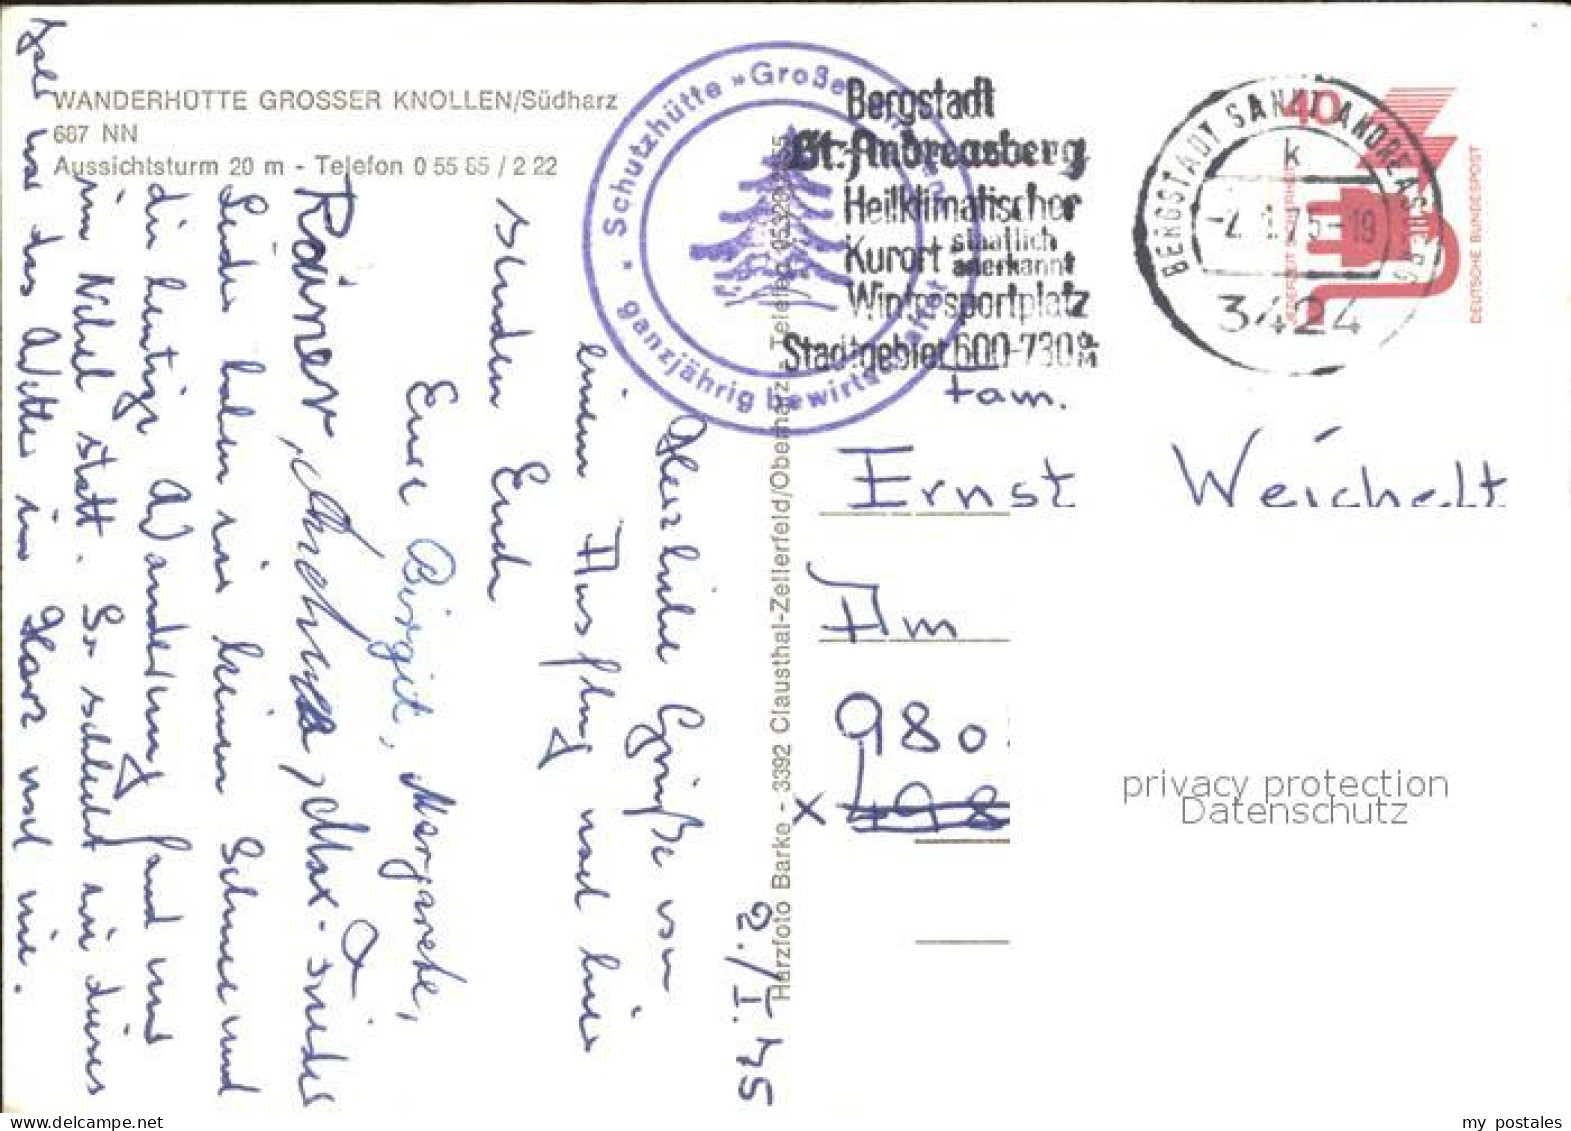 WANDERHÜTTE GROSSER KNOLLEN/Südharz
687 NN
Aussichtsturm 20 m - Telefon 0 55 85 / 2 22
2./I.75
Herzliche Grüße von
einem Ausflug nach hier
senden Euch
Eure Birgit, Margarete,
Rainer, Andreas, Max-Frieder
Leider haben wir keinen Schnee und
die heutige Wanderung fand nur
im Nebel statt. So schlecht wie dieses
Jahr war das Wetter im Harz noch nie.
Schutzhütte »Großer Knollen
* ganzjährig bewirtschaftet
Harzfoto Barke - 3392 Clausthal-Zellerfeld/Oberharz - Telefon 05323
Bergstadt
St. Andreasberg
Heilklimatischer
Kurort staatlich anerkannt
Wintersportplatz
Stadtgebiet 600-730 M
BERGSTADT SANKT ANDREASBERG
k
-2.1.75-19
3424
40
JEDERZEIT SICHERHEIT
DEUTSCHE BUNDESPOST
Fam.
Ernst Weichelt
Am
980
x 498
privacy protection
Datenschutz
www.delcampe.net
my_postales